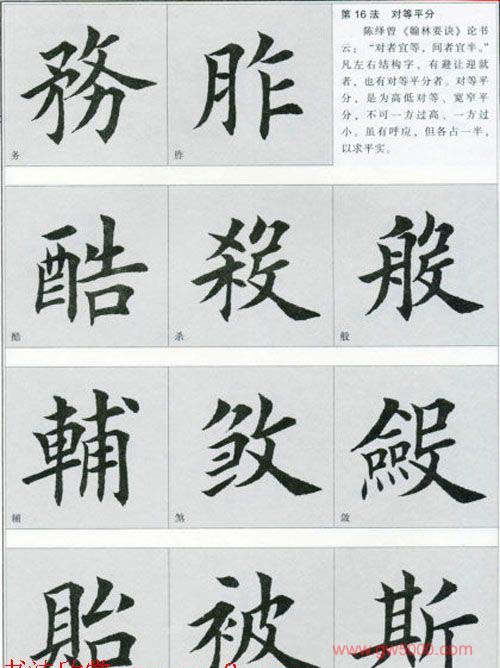 第16法 对等平分
陈绎曾《翰林要诀》论书
云:“对者宜等,间者宜半。”
凡左右结构字,有避让迎就
者,也有对等平分者。对等平
分,是为高低对等、宽窄平
分,不可一方过高、一方过
小。虽有呼应,但各占一半,
以求平实。
務 胙
务 胙
酷 殺 般
酷 杀 般
輔 煞 斂
辅 煞 敛
貽 被 斯